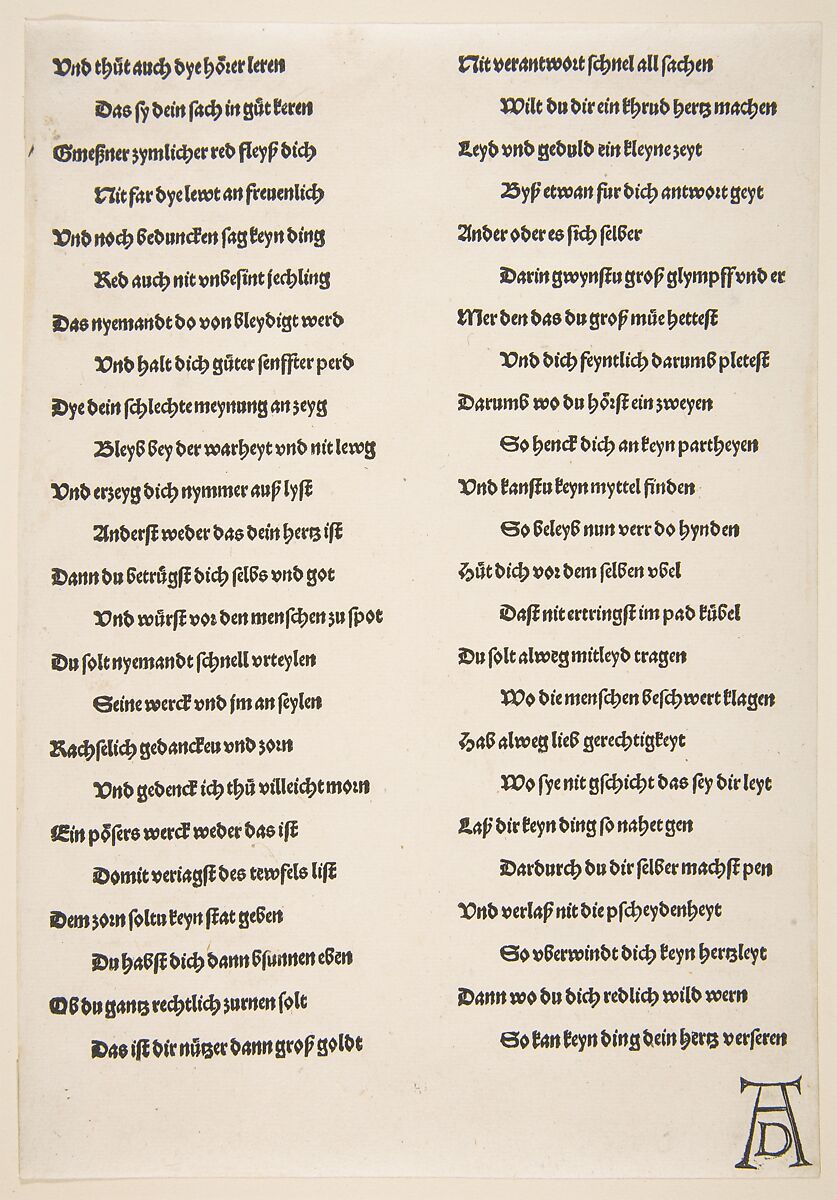 Vnd thůt auch dye hőrer leren
Das sy dein sach in gůt keren
Gmeßner zymlicher red fleyß dich
Nit far dye lewt an freuenlich
Vnd noch beduncken sag keyn ding
Red auch nit vnbesint jechling
Das nyemandt do von bleydigt werd
Vnd halt dich güter senffter perd
Dye dein schlechte meynung an zeyg
Bleyb bey der warheyt vnd nit lewg
Vnd erzeyg dich nymmer auß lyst
Anderst weder das dein hertz ist
Dann du betrügst dich selbs vnd got
Vnd würst vor den menschen zu spot
Du solt nyemandt schnell vrteylen
Seine werck vnd jm an seylen
Rachselich gedanckeu vnd zorn
Vnd gedenck ich thů villeicht morn
Ein pősers werck weder das ist
Domit veriagst des tewfels list
Dem zorn soltu keyn stat geben
Du habst dich dann bsunnen eben
Ob du gantz rechtlich zurnen solt
Das ist dir nützer dann groß goldt
Nit verantwort schnel all sachen
Wilt du dir ein khrud hertz machen
Leyd vnd geduld ein kleyne zeyt
Byß etwan fur dich antwort geyt
Ander oder es sich selber
Darin gwynstu groß glympff vnd er
Mer den das du groß müe hettest
Vnd dich feyntlich darumb pletest
Darumb wo du hőrst ein zweyen
So henck dich an keyn partheyen
Vnd kanstu keyn myttel finden
So beleyb nun verr do hynden
Hüt dich vor dem selben vbel
Dast nit ertringst im pad kübel
Du solt alweg mitleyd tragen
Wo die menschen beschwert klagen
Hab alweg lieb gerechtigkeyt
Wo sye nit gschicht das sey dir leyt
Laß dir keyn ding so nahet gen
Dardurch du dir selber machst pen
Vnd verlaß nit die pscheydenheyt
So vberwindt dich keyn hertzleyt
Dann wo du dich redlich wild wern
So kan keyn ding dein hertz verseren
AD